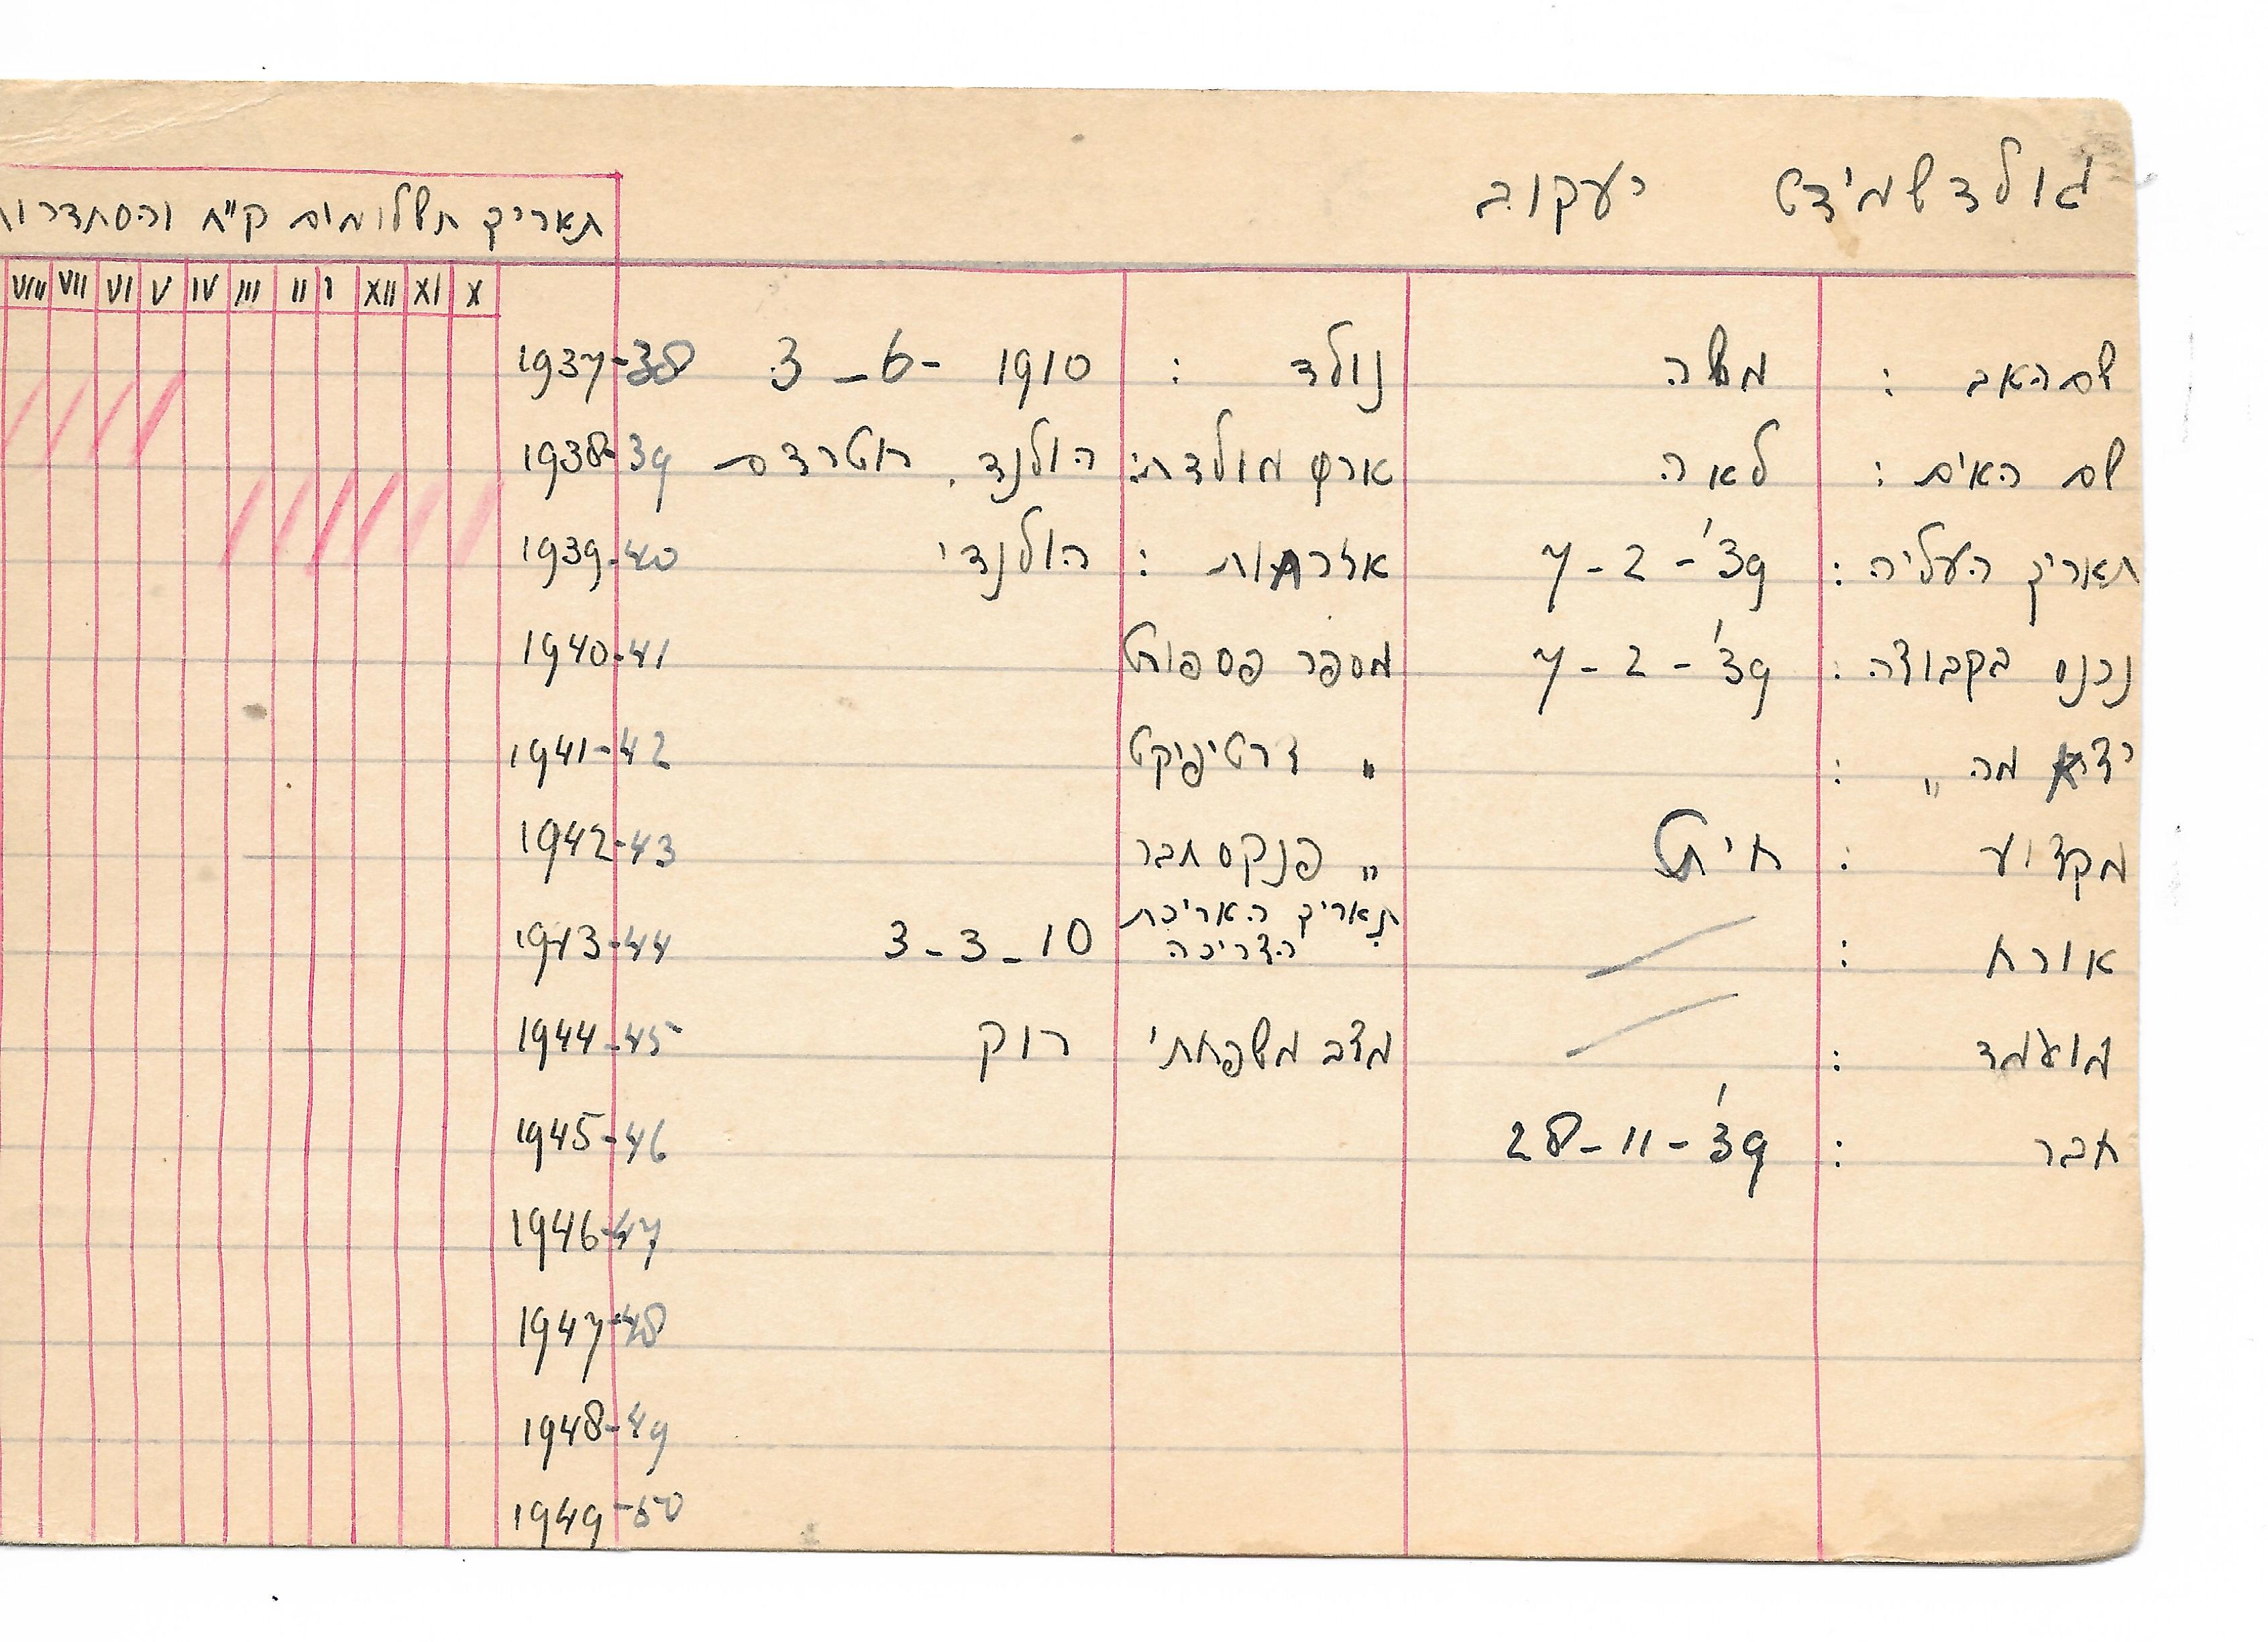 גולדשמידט יעקוב
תאריך תשלומים ק"ח והסתדרות
X XI XII I II III IV V VI VII VIII
שם האב : משה נולד : 3-6-1910 1937-38
שם האים : לאה ארץ מולדת: הולנד. רוטרדם 1938-39
תאריך העליה : 7-2-'39 אזרחות : הולנדי 1939-40
נכנס בקבוצה : 7-2-'39 מספר פספורט 1940-41
יצא מה " : " צרטיפיקט 1941-42
מקצוע : חיט " פנקס חבר 1942-43
אורח : תאריך האריכת הצריכה 3-3-10 1943-44
מועמד : מצב משפחתי רוק 1944-45
חבר : 28-11-'39 1945-46
1946-47
1947-48
1948-49
1949-50